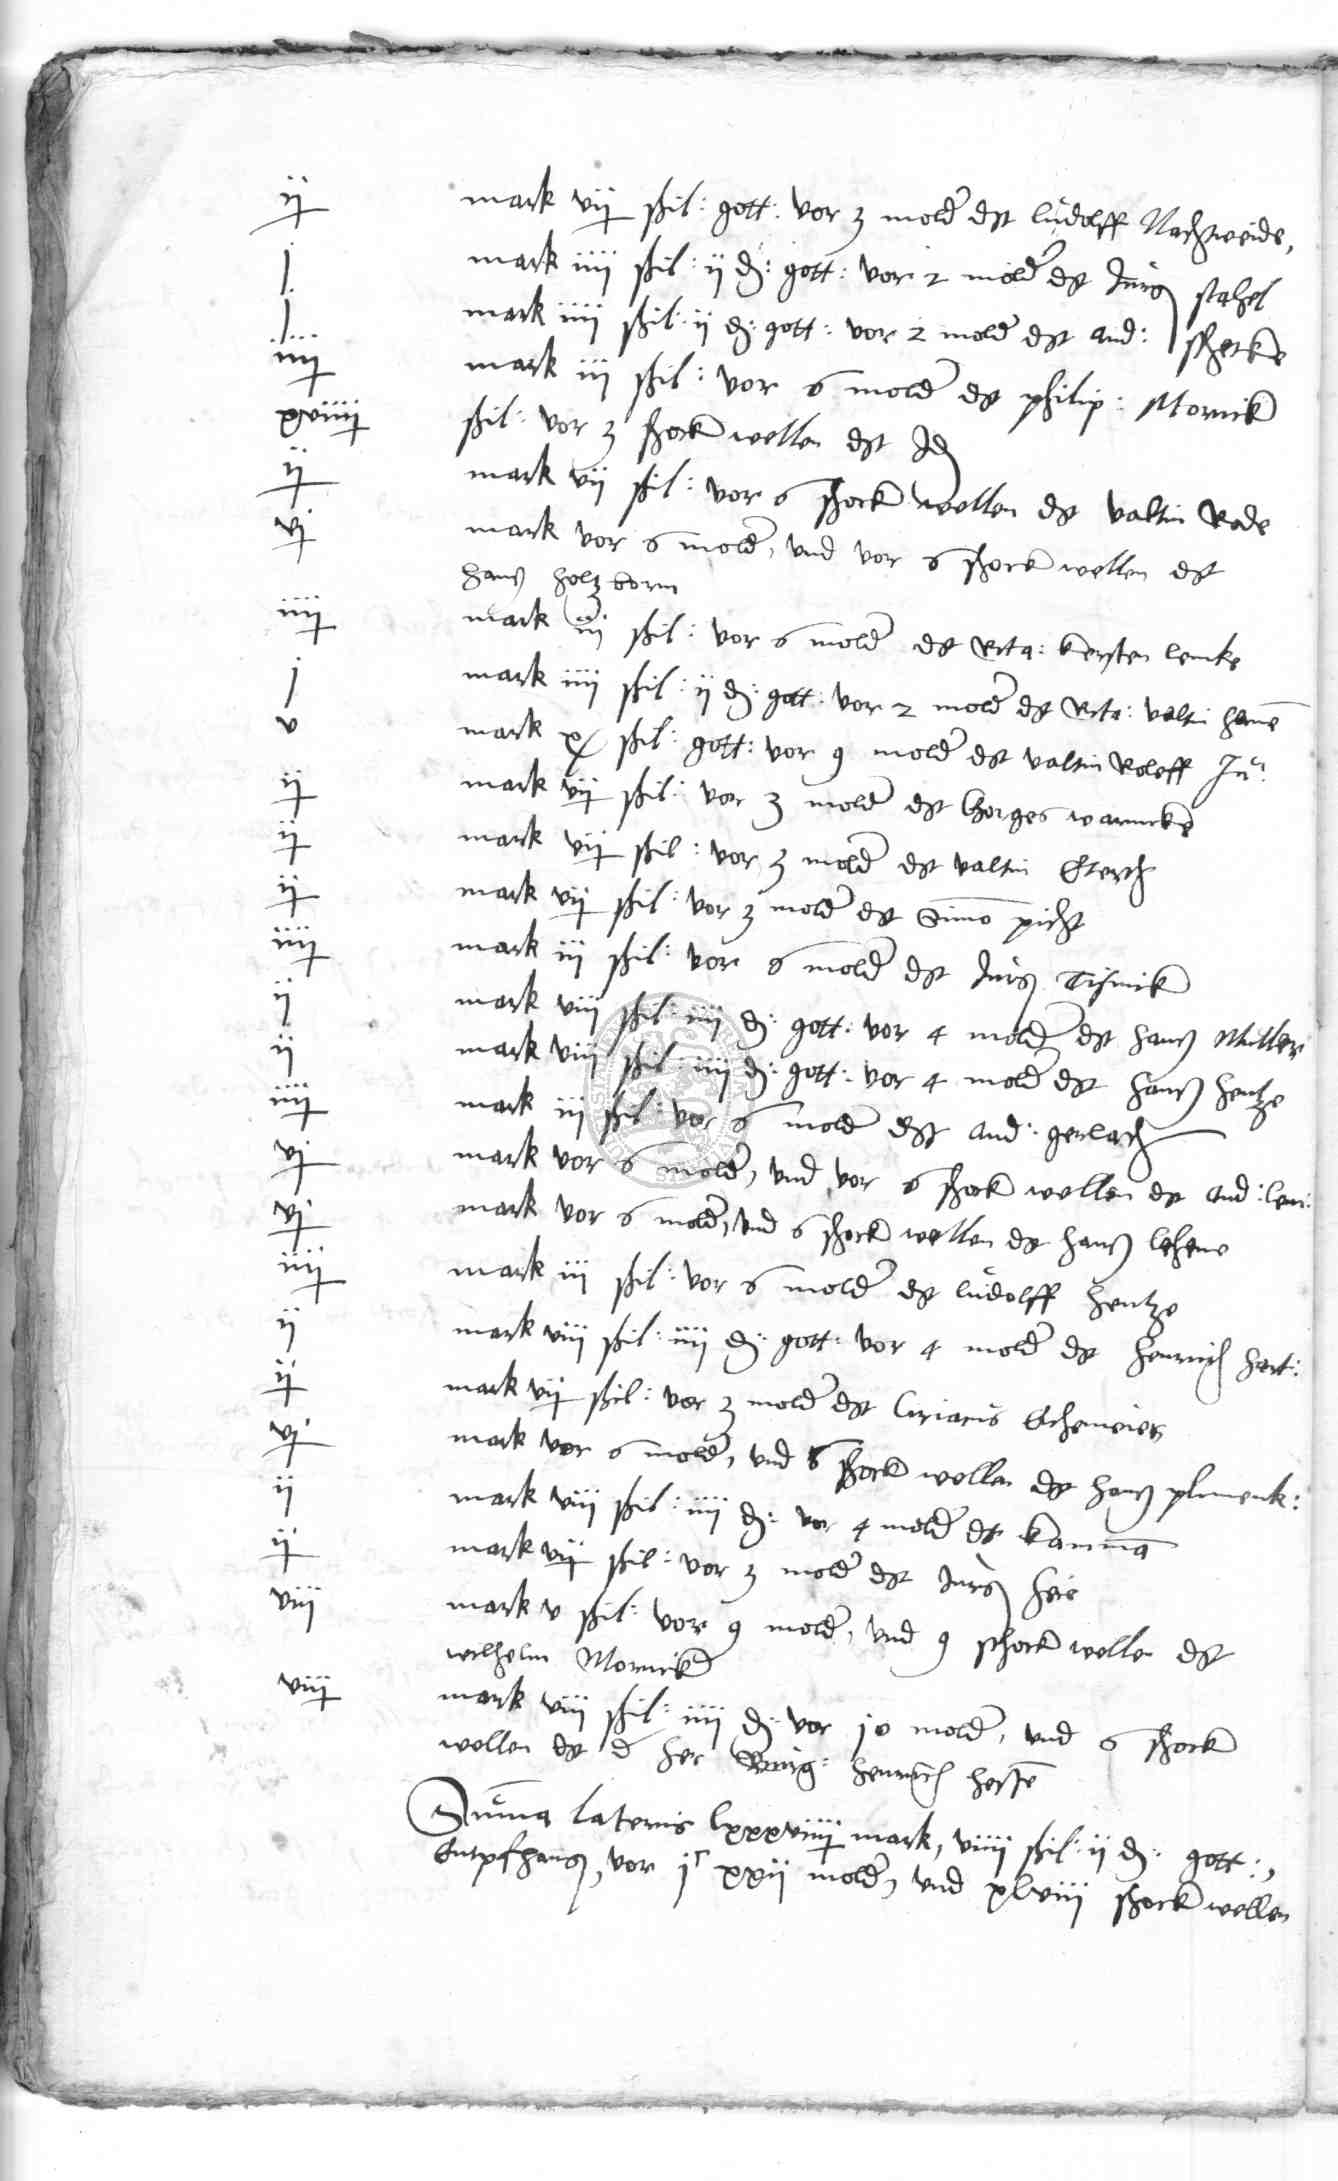 ij mark vij shil: gott: vor 3 molder dt ludolff Nachtweide,
j mark iiij shil: ij d: gott: vor 2 molder dt Jurg stahel
j mark iiij shil: ij d: gott: vor 2 molder dt And:
iiij mark iij shil: vor 6 molder dt philip: Mornick
xviiij shil: vor 3 shock wellen dt
ij mark vij shil: vor 6 shock wellen dt valtin Rode
vj mark vor 6 molder, vnd vor 6 shock wellen dt
hans holtzborn
iiij mark iij shil: vor 6 molder dt kersten lemke
j mark iiij shil: ij d: gott: vor 2 molder dt valtin
v mark x shil: gott: vor 9 molder dt valtin Roleff Ju:
ij mark vij shil: vor 3 molder dt Chorges warneke
ij mark vij shil: vor 3 molder dt valtin
ij mark vij shil: vor 3 molder dt Simo picht
iiij mark iij shil: vor 6 molder dt Jurg
ij mark viij shil: iiij d: gott: vor 4 molder dt hans Muller
ij mark viij shil: iiij d: gott: vor 4 molder dt hans hentze
iiij mark iij shil: vor 6 molder dt And: gerlach
vj mark vor 6 molder, vnd vor 6 shock wellen dt And: len:
vj mark vor 6 molder, vnd 6 shock wellen dt hans lehene
iiij mark iij shil: vor 6 molder dt ludolff hentze
ij mark viij shil: iiij d: gott: vor 4 molder dt henrich hert:
ij mark vij shil: vor 3 molder dt Ciriacus Echemeier
vj mark vor 6 molder, vnd 6 shock wellen dt hans plumenk:
ij mark viij shil: iiij d: vor 4 molder dt kamma
ij mark vij shil: vor 3 molder dt Jurg heie
viij mark v shil: vor 9 molder, vnd 9 schock wellen dt
wilhelm Mornick
viij mark viij shil: iiij d: vor 10 molder, vnd 6 shock
wellen dt d her Burg: henrich hesse
Suma lateris lxxxviiij mark, viiij shil: ij d: gott:,
Entpfhang, vor jc xxij molder, vnd xlviij shock wellen